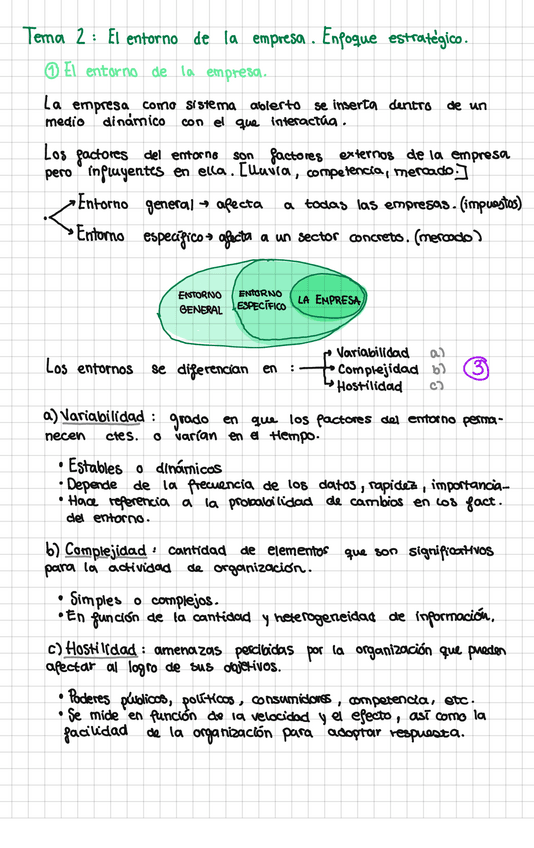 Tema 2: El entorno de la empresa. Enfoque estratégico.
① El entorno de la empresa.
La empresa como sistema abierto se inserta dentro de un
medio dinámico con el que interactúa.
Los factores del entorno son factores externos de la empresa
pero influyentes en ella. [lluvia, competencia, mercado.]
Entorno general → afecta a todas las empresas. (impuestos)
Entorno específico → afecta a un sector concreto. (mercado)
ENTORNO GENERAL
ENTORNO ESPECÍFICO
LA EMPRESA
Los entornos se diferencian en :
Variabilidad a)
Complejidad b)
Hostilidad c)
③
a) Variabilidad : grado en que los factores del entorno perma-
necen ctes. o varían en el tiempo.
• Estables o dinámicos
• Depende de la frecuencia de los datos, rapidez, importancia...
• Hace referencia a la probabilidad de cambios en los fact.
del entorno.
b) Complejidad : cantidad de elementos que son significativos
para la actividad de organización.
• Simples o complejos.
• En función de la cantidad y heterogeneidad de información.
c) Hostilidad : amenazas percibidas por la organización que pueden
afectar al logro de sus objetivos.
• Poderes públicos, políticos, consumidores, competencia, etc.
• Se mide en función de la velocidad y el efecto, así como la
facilidad de la organización para adoptar respuesta.